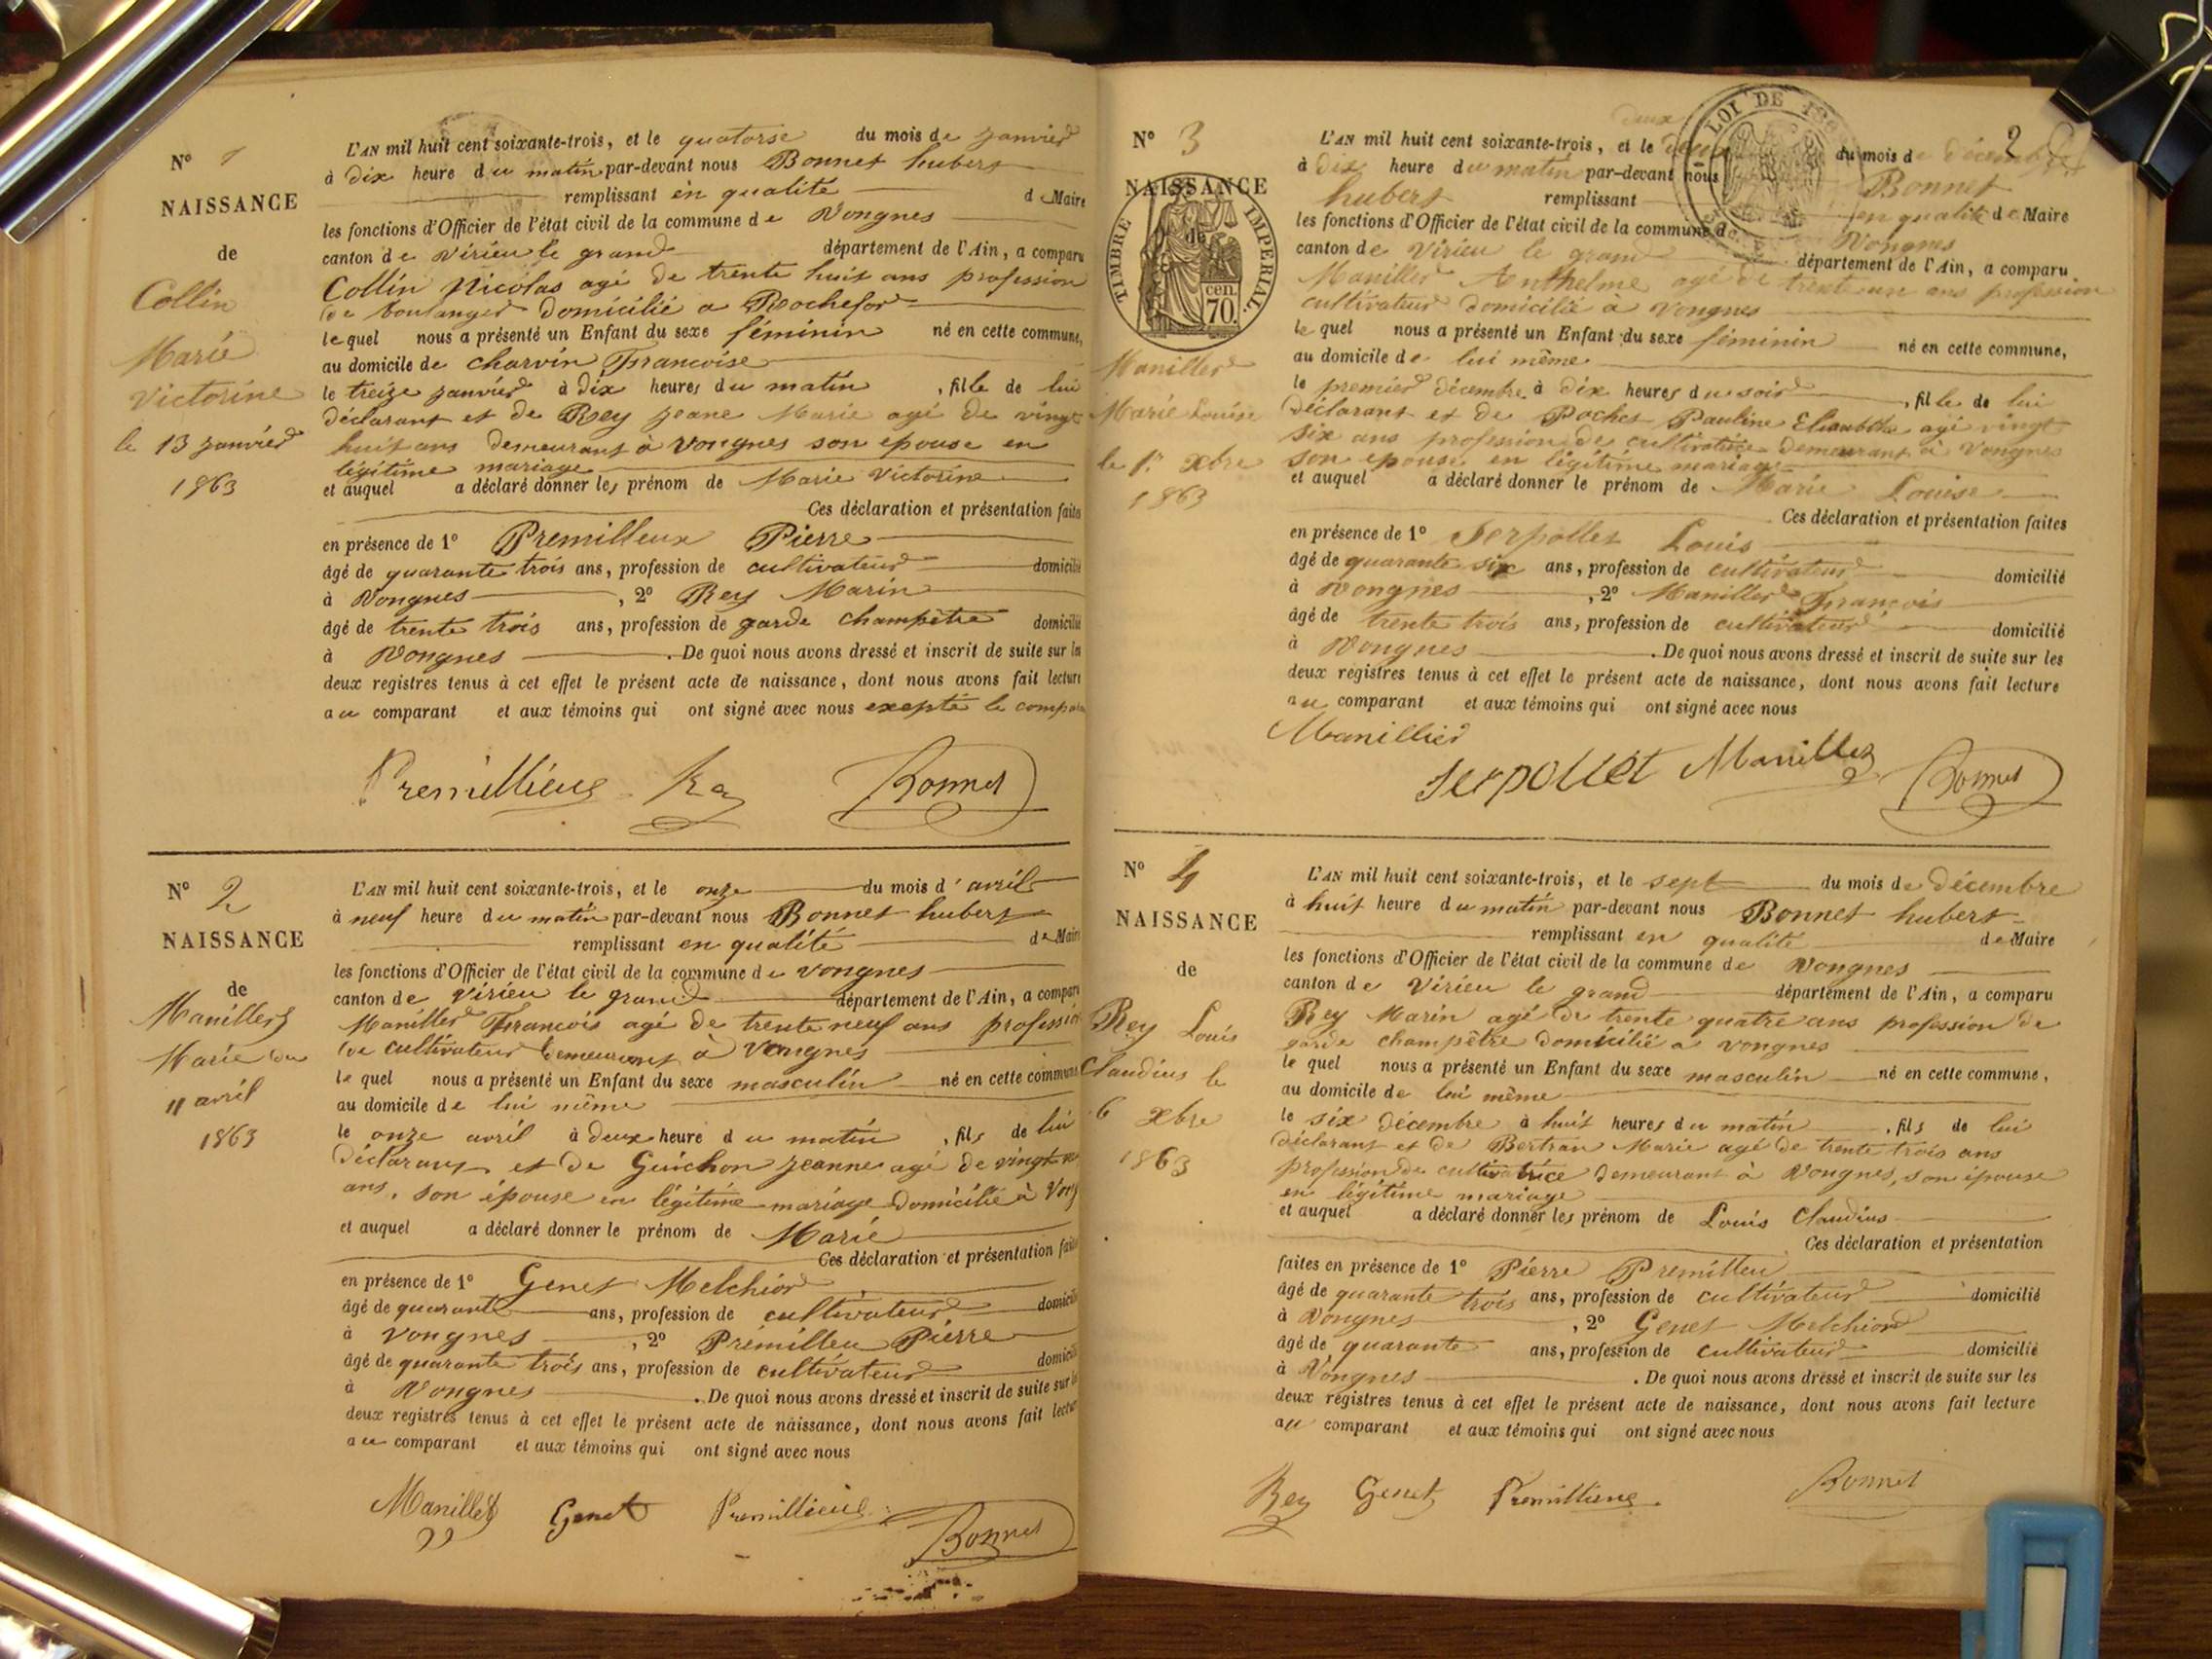 N° 1
NAISSANCE
de
Collin
Marie
Victorine
le 13 janvier
1863
L'AN mil huit cent soixante-trois, et le quatorse du mois de janvier
à dix heure du matin par-devant nous Bonnet hubert
remplissant en qualité de Maire
les fonctions d'Officier de l'état civil de la commune de Vongnes
canton de Virieu le grand département de l'Ain, a comparu
Collin Nicolas agé de trente huit ans profession
de boulanger domicilié a Rochefor
le quel nous a présenté un Enfant du sexe féminin né en cette commune,
au domicile de charvin Francoise
le treize janvier à dix heures du matin, fille de lui
déclarant et de Rey jeane Marie agé de vingt
huit ans demeurant à Vongnes son epouse en
légitime mariage
et auquel a déclaré donner les prénom de Marie Victorine
Ces déclaration et présentation faites
en présence de 1° Premilleux Pierre
âgé de quarante trois ans, profession de cultivateur domicilié
à Vongnes, 2° Rey Marin
âgé de trente trois ans, profession de garde champêtre domicilié
à Vongnes. De quoi nous avons dressé et inscrit de suite sur les
deux registres tenus à cet effet le présent acte de naissance, dont nous avons fait lecture
au comparant et aux témoins qui ont signé avec nous excepté le compara
Premillieux Rey Bonnet
N° 2
NAISSANCE
de
Manillier
Marie du
11 avril
1863
L'AN mil huit cent soixante-trois, et le onze du mois d'avril
à neuf heure du matin par-devant nous Bonnet hubert
remplissant en qualité de Maire
les fonctions d'Officier de l'état civil de la commune de Vongnes
canton de Virieu le grand département de l'Ain, a comparu
Maniller Francois agé de trente neuf ans profession
de cultivateur demeurant à Vongnes
le quel nous a présenté un Enfant du sexe masculin né en cette commune
au domicile de lui même
le onze avril à deux heure du matin, fils de lui
déclarant et de Guichon jeanne agé de vingt
ans, son épouse en légitime mariage domicilié à Vong
et auquel a déclaré donner le prénom de Marie
Ces déclaration et présentation faites
en présence de 1° Genet Melchior
âgé de quarante ans, profession de cultivateur domicilié
à Vongnes, 2° Prémilleu Pierre
âgé de quarante trois ans, profession de cultivateur domicilié
à Vongnes. De quoi nous avons dressé et inscrit de suite sur les
deux registres tenus à cet effet le présent acte de naissance, dont nous avons fait lecture
au comparant et aux témoins qui ont signé avec nous
Manillier Genet Premillieux Bonnet
2
N° 3
NAISSANCE
de
TIMBRE IMPERIAL
70 cen.
LOI DE
Maniller
Marie Louise
le 1er xbre
1863
deux
L'AN mil huit cent soixante-trois, et le du mois de décembre
à dix heure du matin par-devant nous Bonnet
hubert remplissant en qualité de Maire
les fonctions d'Officier de l'état civil de la commune de Vongnes
canton de Virieu le grand département de l'Ain, a comparu
Maniller Anthelme agé de trente un ans profession
cultivateur domicilié à Vongnes
le quel nous a présenté un Enfant du sexe féminin né en cette commune,
au domicile de lui même
le premier décembre à dix heures du soir, fille de lui
déclarant et de Pochet Pauline Elisabthe agé vingt
six ans profession de cultivatrice demeurant à Vongnes
son epouse en légitime mariage
et auquel a déclaré donner le prénom de Marie Louise
Ces déclaration et présentation faites
en présence de 1° Serpollet Louis
âgé de quarante six ans, profession de cultivateur domicilié
à Vongnes, 2° Maniller François
âgé de trente trois ans, profession de cultivateur domicilié
à Vongnes. De quoi nous avons dressé et inscrit de suite sur les
deux registres tenus à cet effet le présent acte de naissance, dont nous avons fait lecture
au comparant et aux témoins qui ont signé avec nous
Manillier
Serpollet Manillier Bonnet
N° 4
NAISSANCE
de
Rey Louis
Claudius le
6 xbre
1863
L'AN mil huit cent soixante-trois, et le sept du mois de décembre
à huit heure du matin par-devant nous Bonnet hubert
remplissant en qualité de Maire
les fonctions d'Officier de l'état civil de la commune de Vongnes
canton de Virieu le grand département de l'Ain, a comparu
Rey Marin agé de trente quatre ans profession de
garde champêtre domicilié a Vongnes
le quel nous a présenté un Enfant du sexe masculin né en cette commune,
au domicile de lui même
le six décembre à huit heures du matin, fils de lui
déclarant et de Bertran Marie agé de trente trois ans
profession de cultivatrice demeurant à Vongnes, son épouse
en légitime mariage
et auquel a déclaré donner les prénom de Louis Claudius
Ces déclaration et présentation
faites en présence de 1° Pierre Premilleu
âgé de quarante trois ans, profession de cultivateur domicilié
à Vongnes, 2° Genet Melchior
âgé de quarante ans, profession de cultivateur domicilié
à Vongnes. De quoi nous avons dressé et inscrit de suite sur les
deux registres tenus à cet effet le présent acte de naissance, dont nous avons fait lecture
au comparant et aux témoins qui ont signé avec nous
Rey Genet Premillieux Bonnet